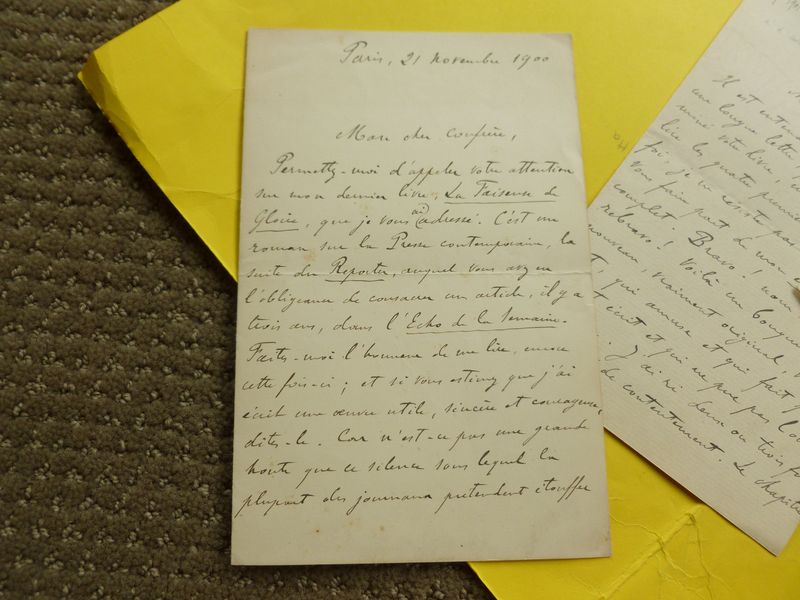 Paris, 21 novembre 1900
Mon cher Confrère,
Permettez-moi d'appeler votre attention
sur mon dernier livre, La Faiseuse de
Gloire, que je vous ai adressé. C'est un
roman sur la Presse contemporaine, la
suite du Reporter, auquel vous avez eu
l'obligeance de consacrer un article, il y a
trois ans, dans l'Echo de la Semaine.
Faites-moi l'honneur de me lire, encore
cette fois-ci ; et si vous estimez que j'ai
écrit une œuvre utile, sincère et courageuse,
dites-le. Car n'est-ce pas une grande
honte que ce silence sous lequel la
plupart des journaux prétendent étouffer
Il est
une longue lettre
miné votre livre,
lire les quatre premie
foi, je ne résiste pas
vous faire part de mon
complet. Bravo! nom
rebravo! Voilà un bouquin
nouveau, vraiment original,
qui amuse et qui fait
écrit et qui ne pue pas
J'ai ri deux ou trois fo
de contentement. Le chapit